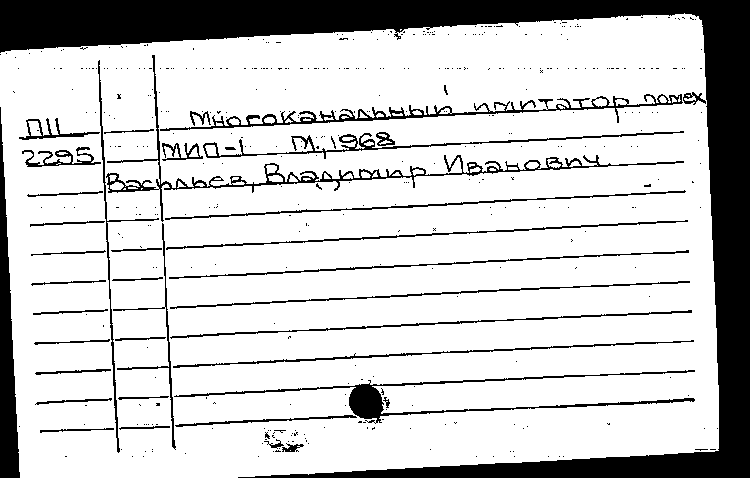 П11 Многоканальный имитатор помех
2295 МИП-1 М., 1968
Васильев, Владимир Иванович